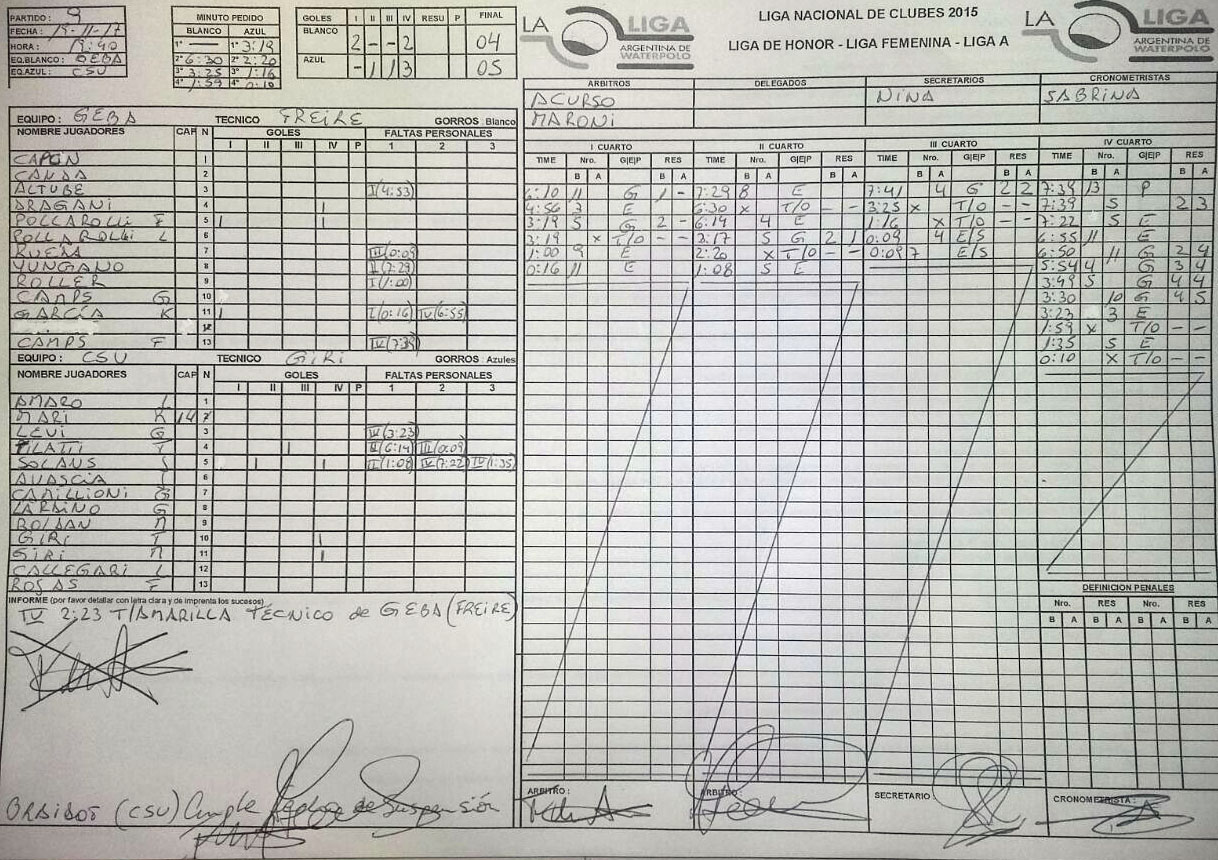 PARTIDO: 9
FECHA: 15-11-17
HORA: 19:40
EQ.BLANCO: GEBA
EQ.AZUL: CSU
MINUTO PEDIDO
BLANCO AZUL
1° — 1° 3:19
2° 6:30 2° 2:20
3° 3:25 3° 1:16
4° 1:59 4° 0:10
GOLES I II III IV RESU P FINAL
BLANCO 2 - - 2 04
AZUL - 1 1 3 05
LA LIGA
ARGENTINA DE WATERPOLO
LIGA NACIONAL DE CLUBES 2015
LIGA DE HONOR - LIGA FEMENINA - LIGA A
LA LIGA
ARGENTINA DE WATERPOLO
ARBITROS DELEGADOS SECRETARIOS CRONOMETRISTAS
ACURSO NINA SABRINA
MARONI
EQUIPO: GEBA TECNICO FREIRE GORROS: Blanco
NOMBRE JUGADORES CAP N GOLES FALTAS PERSONALES
I II III IV P 1 2 3
CAPON 1
CANDA 2
ALTUBE 3 I(4:53)
DRAGANI 4 |
POLLAROLLI F 5 | |
POLLAROLLI L 6
RUEMA 7 III(0:09)
YUNGANO 8 II(7:29)
ROLLER 9 I(1:00)
CAMPS G 10
GARCÍA K 11 | I(0:16) IV(6:55)
12
CAMPS F 13 IV(7:39)
EQUIPO: CSU TECNICO GIRI GORROS: Azules
NOMBRE JUGADORES CAP N GOLES FALTAS PERSONALES
I II III IV P 1 2 3
AMARO L 1
MARI K 14 2
LEVI G 3 IV(3:23)
PILATTI T 4 | II(6:14) III(0:09)
SOLANS J 5 | | II(1:08) IV(7:22) IV(1:35)
6
CAMILLIONI G 7
LARDINO G 8
ROLDAN M 9
GIRI T 10 |
GIRI M 11 |
CALLEGARI L 12
ROSAS F 13
I CUARTO
TIME Nro. G|E|P RES
B A B A
6:10 11 G 1 -
4:56 3 E
3:19 5 G 2 -
3:19 x T/O - -
1:00 9 E
0:16 11 E
II CUARTO
TIME Nro. G|E|P RES
B A B A
7:29 8 E
6:30 x T/O - -
6:14 4 E
3:17 5 G 2 1
2:20 x T/O - -
1:08 5 E
III CUARTO
TIME Nro. G|E|P RES
B A B A
7:41 4 G 2 2
3:25 x T/O - -
1:16 x T/O - -
0:09 4 E/S
0:09 7 E/S
IV CUARTO
TIME Nro. G|E|P RES
B A B A
7:39 13 P
7:39 5 2 3
7:22 5 E
6:55 11 E
6:50 11 G 2 4
5:54 4 G 3 4
3:49 5 G 4 4
3:30 10 G 4 5
3:23 3 E
1:59 x T/O - -
1:35 5 E
0:10 x T/O - -
DEFINICION PENALES
Nro. RES Nro. RES
B A B A B A B A
INFORME (por favor detallar con letra clara y de imprenta los sucesos)
IV 2:23 T/AMARILLA TÉCNICO de GEBA (FREIRE)
(CSU) Cumple de Suspensión
ARBITRO: ARBITRO SECRETARIO CRONOMETRISTA: